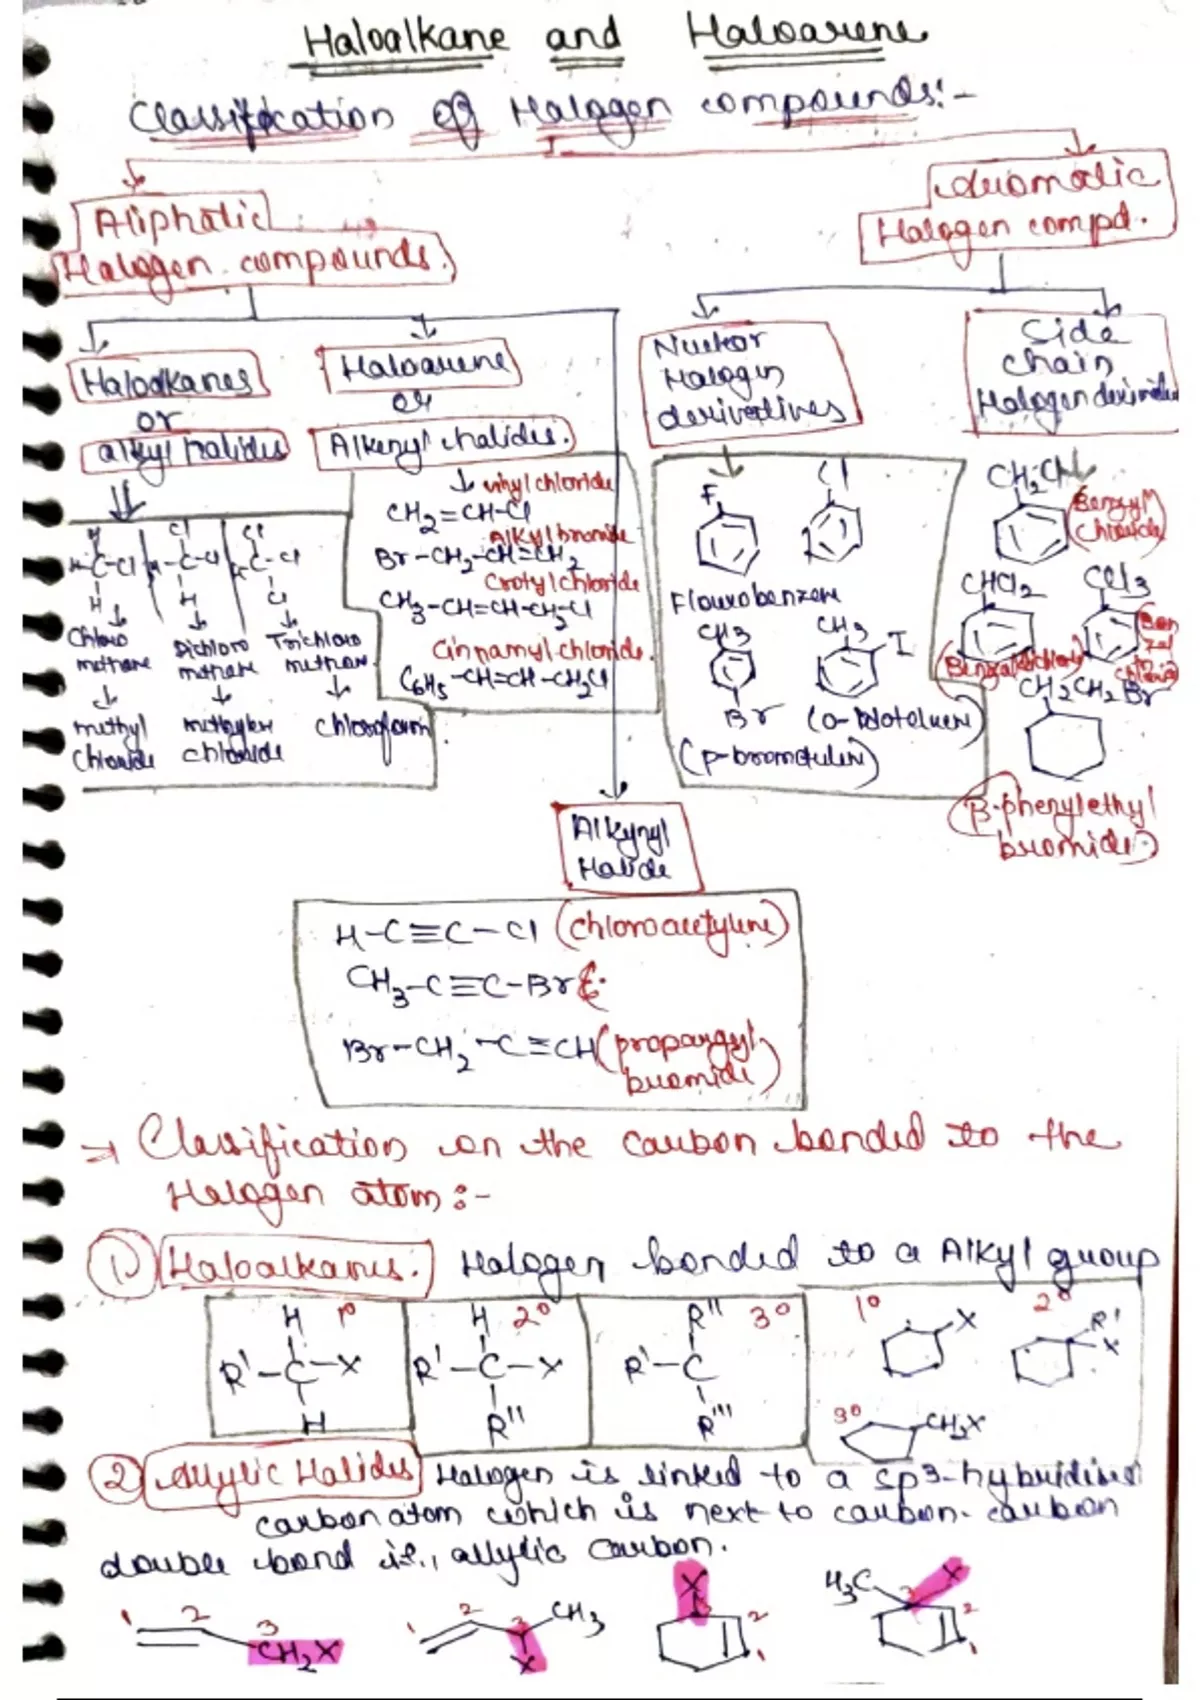 Haloalkane and Haloarene
Classification of Halogen compounds:-
Aliphatic
Halogen compounds.
Aromatic
Halogen compd.
Haloalkanes
or
alkyl halides
Haloarene
or
Alkenyl chalides.
Halogen
derivatives
Side
chain
Halogen
H
H-C-Cl
H
Cl
H-C-Cl
H
Cl
C-Cl
Cl
Chloro
methane
Dichloro
methane
Trichloro
methyl
chloride
chloride
chloroform
vinyl chloride
CH2=CH-Cl
Alkyl bromide
Br-CH2-CH=CH2
Crotyl chloride
CH3-CH=CH-CH2-Cl
Cinnamyl chloride.
C6H5-CH=CH-CH2Cl
F
Cl
Flourobenzene
CH3
Br
CH3
I
Benzyl
chloride
CHCl2
CCl3
CH2CH2Br
β-phenylethyl
bromide)
Alkynyl
Halide
H-C≡C-Cl (chloroacetylene)
CH3-C≡C-Br
Br-CH2-C≡CH (propargyl
bromide)
→ Classification on the carbon bonded to the
Halogen atom:-
1) Haloalkanes. Halogen bonded to a Alkyl group
H 1°
R'-C-X
H
H 2°
R'-C-X
R''
R'' 3°
R'-C
R'''
1°
X
2°
R'
X
3°
CH2X
2) Allylic Halides Halogen is linked to a sp3-hybridised
carbon atom which is next to carbon-carbon
double bond i.e., allylic carbon.
1 2 3
CH2X
1 2 3 CH3
X
X
3 2
1
H3C X
3 2
1